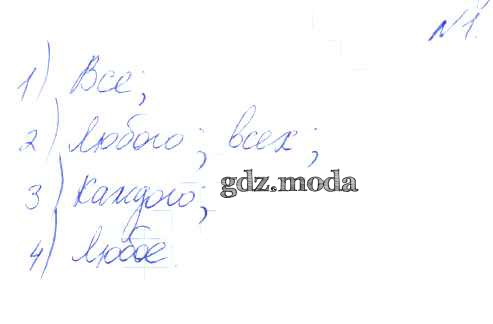 №1.
1) Все;
2) Любого; всех;
3) Каждого;
gdz.moda
4) Любое